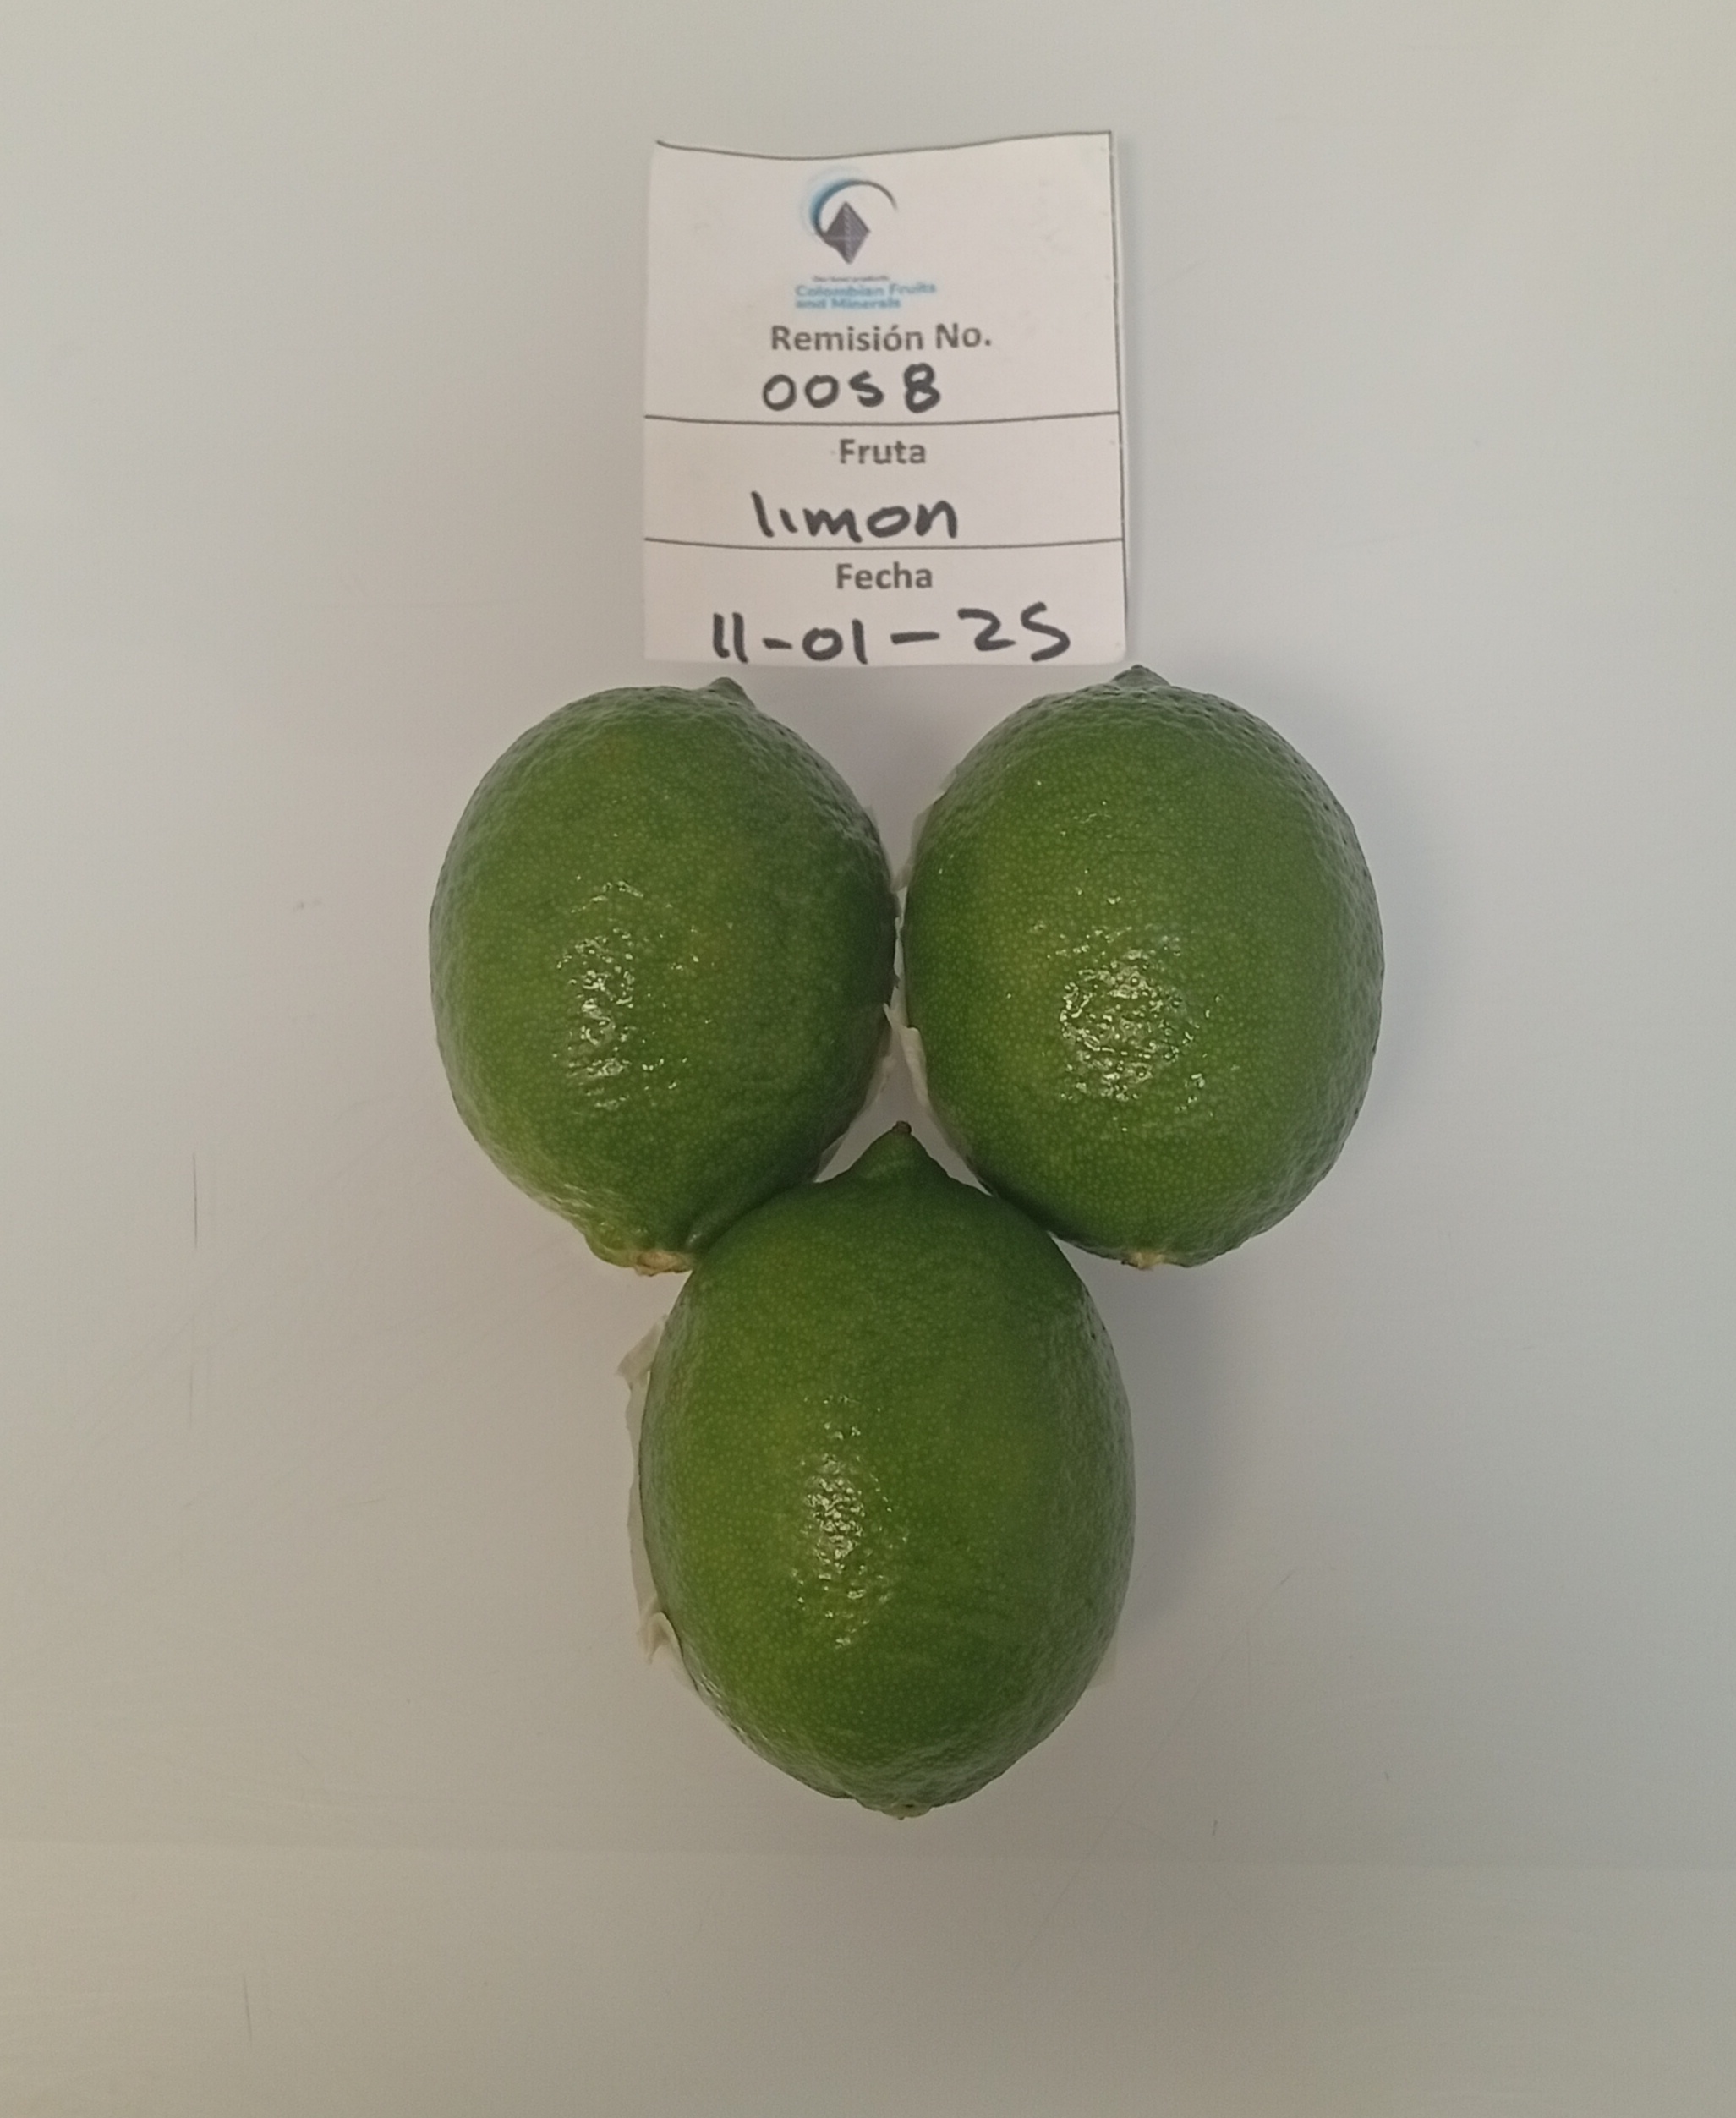 Colombian Fruits
and Minerals
Remisión No.
0058
Fruta
limon
Fecha
11-01-25